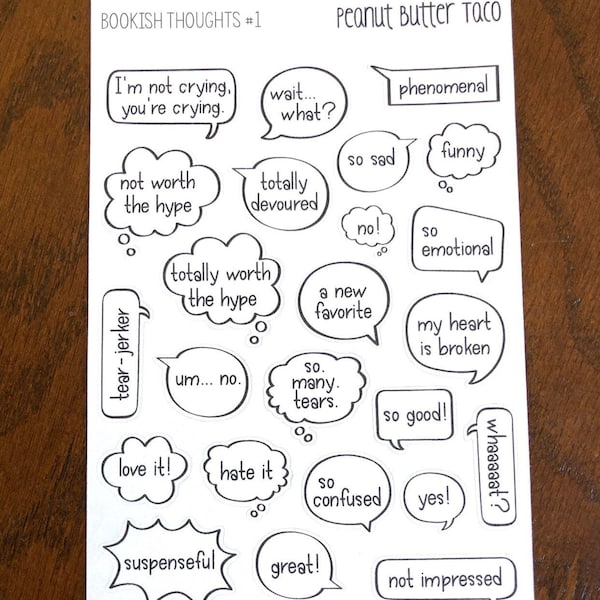 BOOKISH THOUGHTS #1
Peanut Butter Taco
I'm not crying,
you're crying.
wait...
what?
phenomenal
not worth
the hype
totally
devoured
so sad
funny
no!
so
emotional
totally worth
the hype
a new
favorite
my heart
is broken
tear-jerker
um... no.
so.
many.
tears.
so good!
whooooot!?
love it!
hate it
so
confused
yes!
suspenseful
great!
not impressed